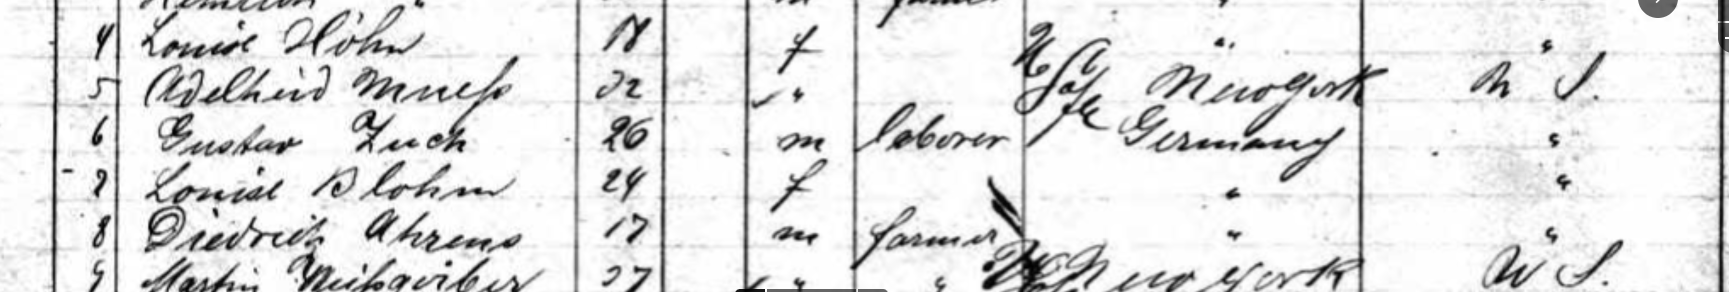 Heinrich "
4 Louise Höhn 18 f " "
5 Adelheid Muess 32 " New York U S.
6 Gustav Zuch 26 m laborer Germany "
7 Louise Blohm 24 f " "
8 Diedrich Ahrens 17 m farmer " "
9 Martin 37 " " New York U S.